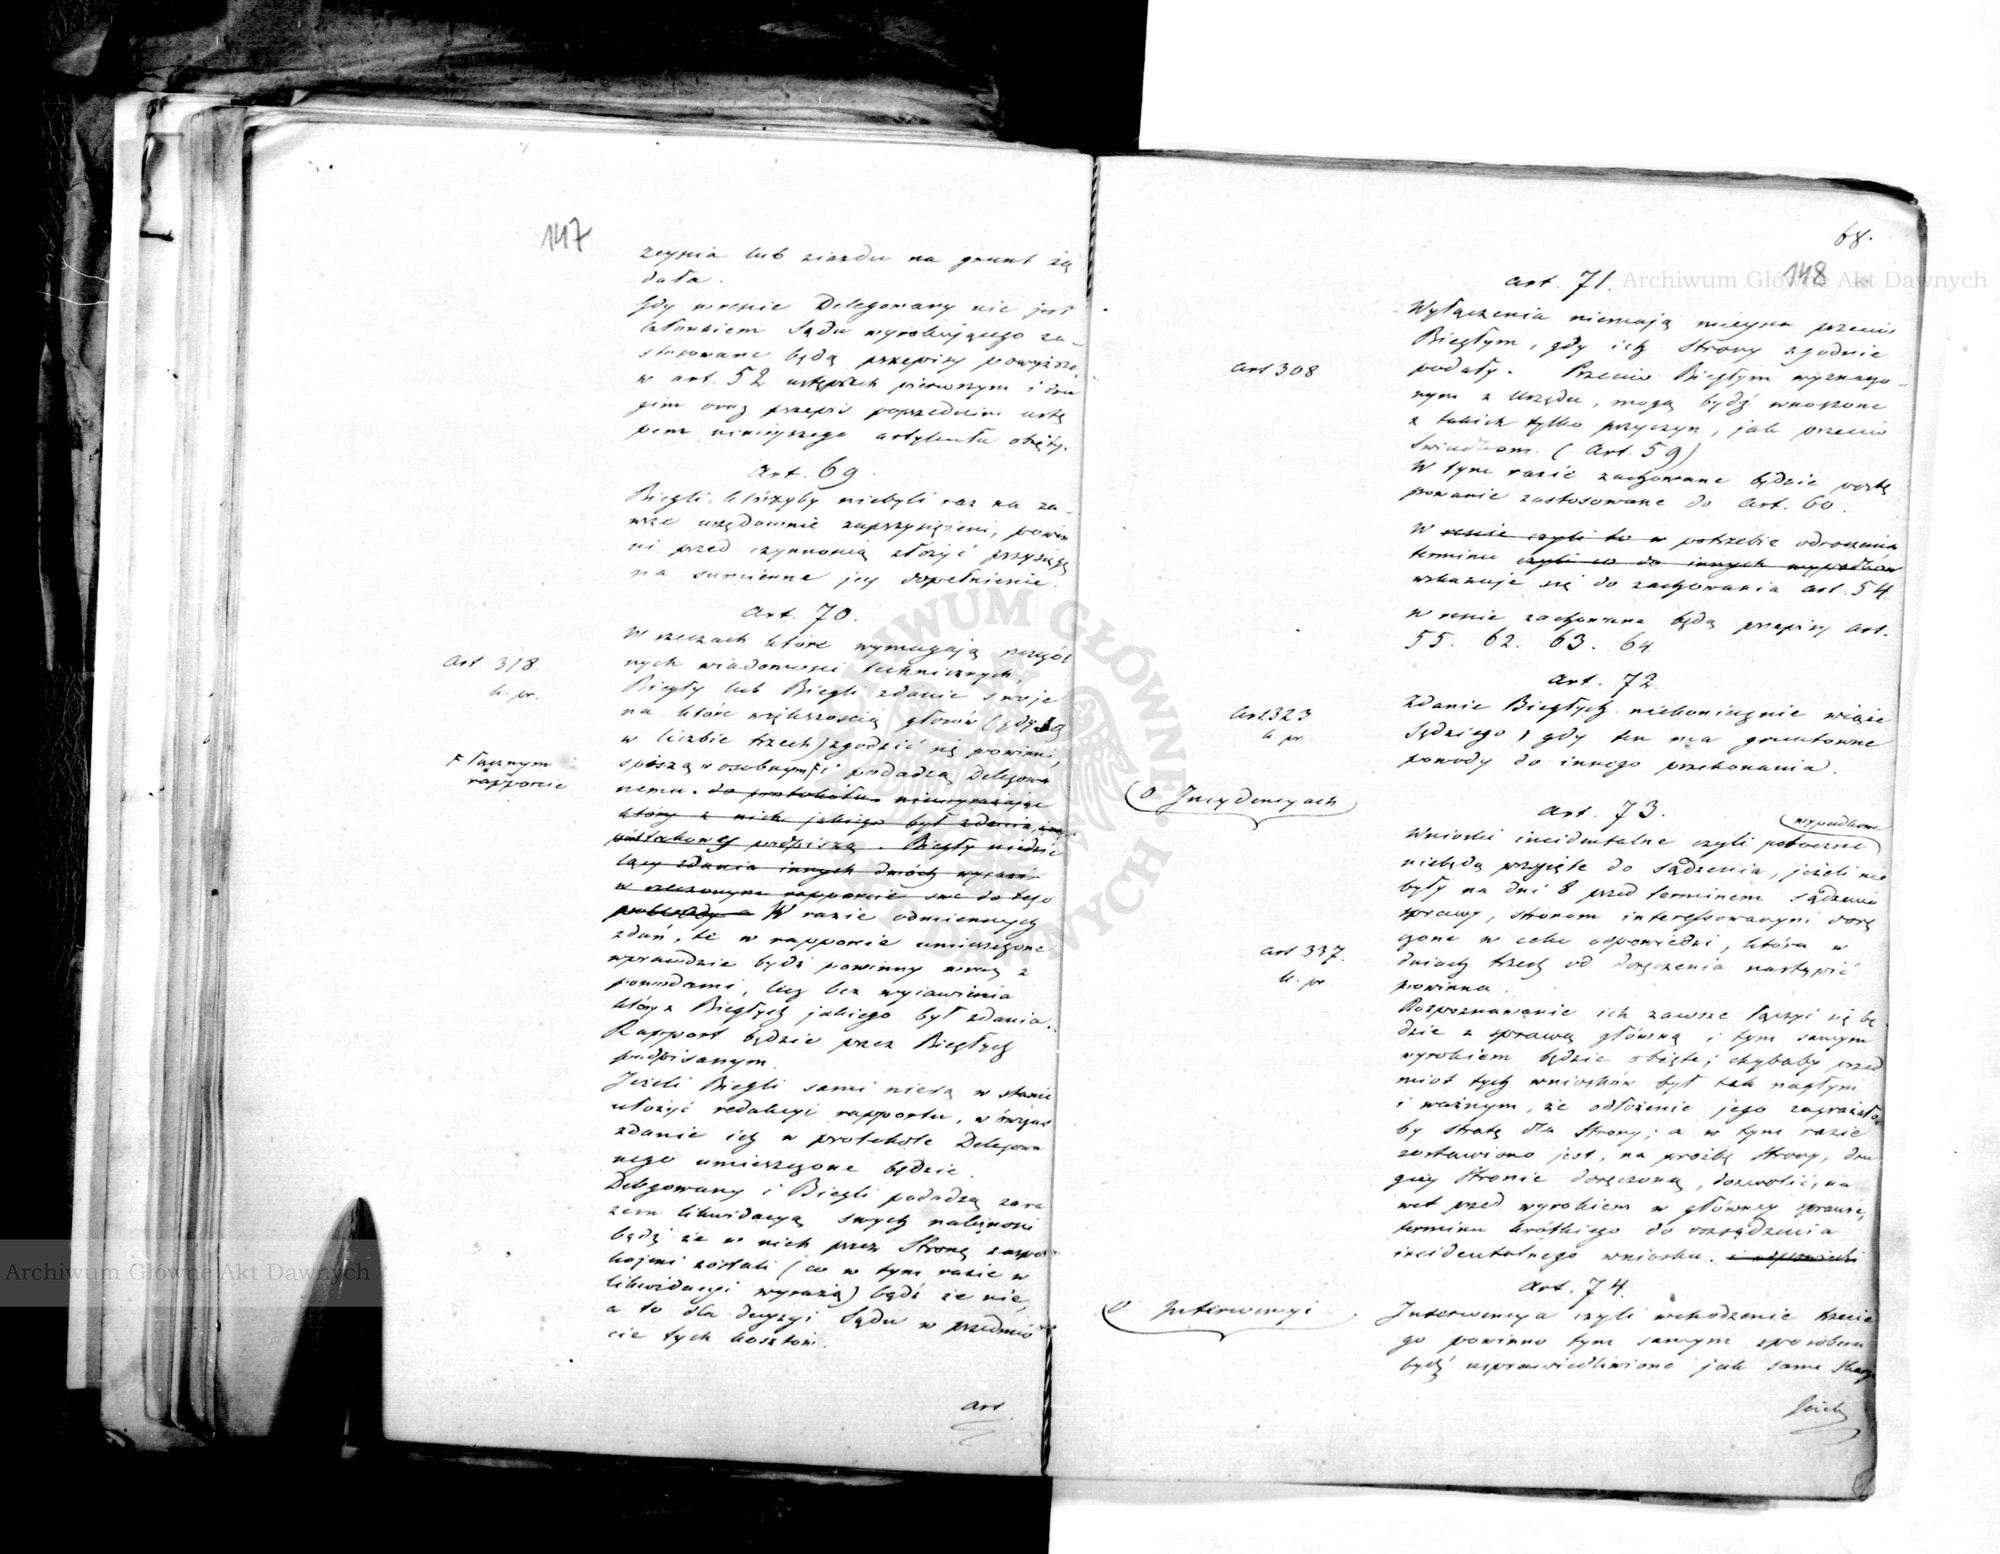 147
zeynia lub ziazdu na grunt żą
dała.
Gdy w resie Delegowany nie jest
Członkiem Sądu wyrokującego za-
stosowane będą przepisy powyższe
w art. 52 ustępach pierwszym i dru
gim oraz przepis poprzednim ustę
pem ninieyszego artykułu obięty.
Art. 69.
Biegli, którzyby niebyli raz na za-
wsze urzędownie zaprzysiężeni, powin
ni przed czynnością złożyć przysięgę
na sumienne jey dopełnienie.
Art. 70.
Art 318
k. pr.
W rzeczach które wymagają szczegól
nych wiadomości technicznych,
Biegły lub Biegli zdanie swoje
na które większością głosów (gdy są
w liczbie trzech) zgodzić się powinni,
F łącznym
rapporcie
spiszą w osobnym F i podadzą Delegowa
nemu. do protokółu niewyrażając
który z nich jakiego był zdania,
podpiszą. Biegły niedzie
lący zdania innych dwóch wyrazi
w rzeczonym rapporcie swe do tego
pobudki a W razie odmiennych
zdań, te w rapporcie umieszczone
wprawdzie bydź powinny wraz z
powodami, lecz bez wyiawienia
który z Biegłych jakiego był zdania.
Rapport będzie przez Biegłych
podpisanym.
Jeżeli Biegli sami niesą w stanie
ułożyć redakcyi rapportu, wówczas
zdanie ich w protokole Delegowa
nego umieszczone będzie.
Delegowany i Biegli podadzą zara
zem likwidacyą swych należności
bądź że w nich przez Stronę zaspo-
kojeni zostali (co w tym razie w
likwidacyi wyrażą) bądź że nie,
a to dla decyzyi Sądu w przedmio
cie tych kosztów.
Art
68.
148
Art. 71.
Wyłączenia niemają mieysca przeciw
Biegłym, gdy ich Strony zgodnie
Art 308
podały. Przeciw Biegłym wyznaczo-
nym z Urzędu, mogą bydź wnoszone
z takich tylko przyczyn, jak przeciw
Świadkom. (Art. 59)
W tym razie zachowane będzie postę
powanie zastosowane do Art. 60.
W resie czyli to w potrzebie odroczenia
terminu czyli co do innych wypadków
wskazuje się do zachowania art. 54
w resie zachowane będą przepisy art.
55. 62. 63. 64
Art. 72.
Art 323
k. pr.
Zdanie Biegłych niekoniecznie wiąże
Sędziego, gdy ten ma gruntowne
powody do innego przekonania.
O Incydencyach
Art. 73.
wypadkowe
Wnioski incidentalne czyli poboczne
niebędą przyjęte do sądzenia, jeżeli nie
były na dni 8 przed terminem sądzenia
sprawy, stronom interessowanym dorę
czone w celu odpowiedzi, która w
Art 337.
k. pr
dniach trzech od doręczenia nastąpić
powinna.
Rozpoznawanie ich zawsze łączyć się bę
dzie z sprawą główną i tym samym
wyrokiem będzie obięte; chybaby przed
miot tych wniosków był tak nagłym
i ważnym, że odłożenie jego zagrażało
by stratą dla Strony; a w tym razie
zostawiono jest, na prośbę Strony, dru
giey Stronie doręczoną, dozwolić, na
wet przed wyrokiem w głównej sprawie,
terminu krótkiego do rozsądzenia
incidentalnego wniosku. i odpowiedzi
Art. 74.
O Interwencyi
Interwencya czyli wchodzenie trzecie
go powinno tym samym sposobem
bydź usprawiedliwione jak sama skarga
Jeżeli
Archiwum Główne Akt Dawnych
Archiwum Główne Akt Dawnych
ARCHIWUM GŁÓWNE AKT DAWNYCH